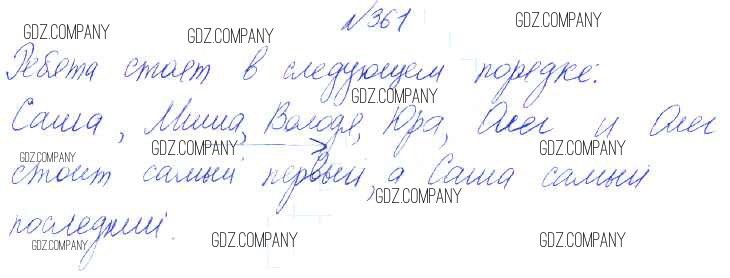 №361
Ребята стоят в следующем порядке:
Саша, Миша, Володя, Юра, Олег и Олег
стоит самый первый, а Саша самый
последний.
GDZ.COMPANY
GDZ.COMPANY
GDZ.COMPANY
GDZ.COMPANY
GDZ.COMPANY
GDZ.COMPANY
GDZ.COMPANY
GDZ.COMPANY
GDZ.COMPANY
GDZ.COMPANY
GDZ.COMPANY